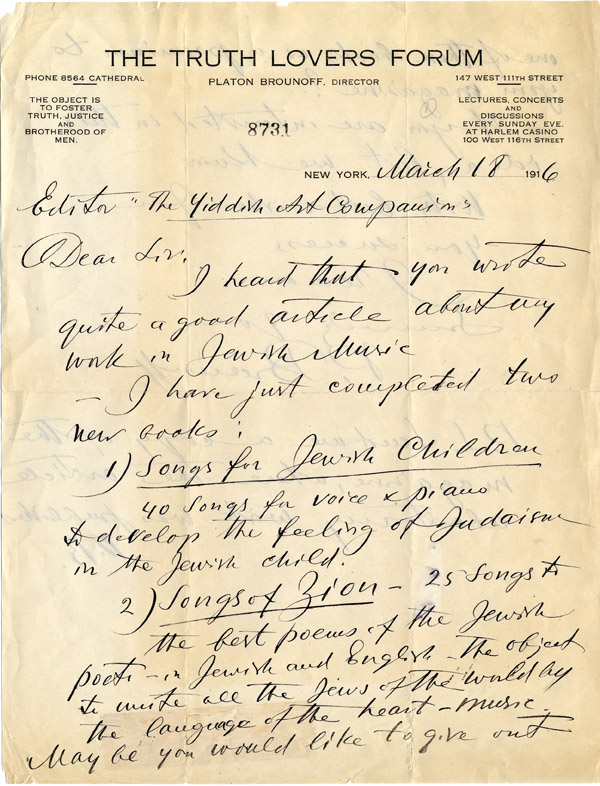 THE TRUTH LOVERS FORUM
PHONE 8564 CATHEDRAL
PLATON BROUNOFF, DIRECTOR
147 WEST 111TH STREET
THE OBJECT IS
TO FOSTER
TRUTH, JUSTICE
AND
BROTHERHOOD OF
MEN.
LECTURES, CONCERTS
AND
DISCUSSIONS
EVERY SUNDAY EVE.
AT HARLEM CASINO
100 WEST 116TH STREET
8731
NEW YORK, March 18 1916
Editor "The Yiddish Art Companion"
Dear Sir,
I heard that you wrote
quite a good article about my
work in Jewish Music
— I have just completed two
new books:
1) Songs for Jewish Children
40 Songs for voice & piano
to develop the feeling of Judaism
in the Jewish child.
2) Songs of Zion – 25 Songs to
the best poems of the Jewish
poets – in Jewish and English – the object
to unite all the Jews of the world by
the language of the heart – music.
May be you would like to give out